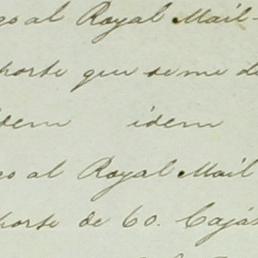 go al Royal Mail
porte que se me de
idem idem
go al Royal Mail
porte de 60. Cajas